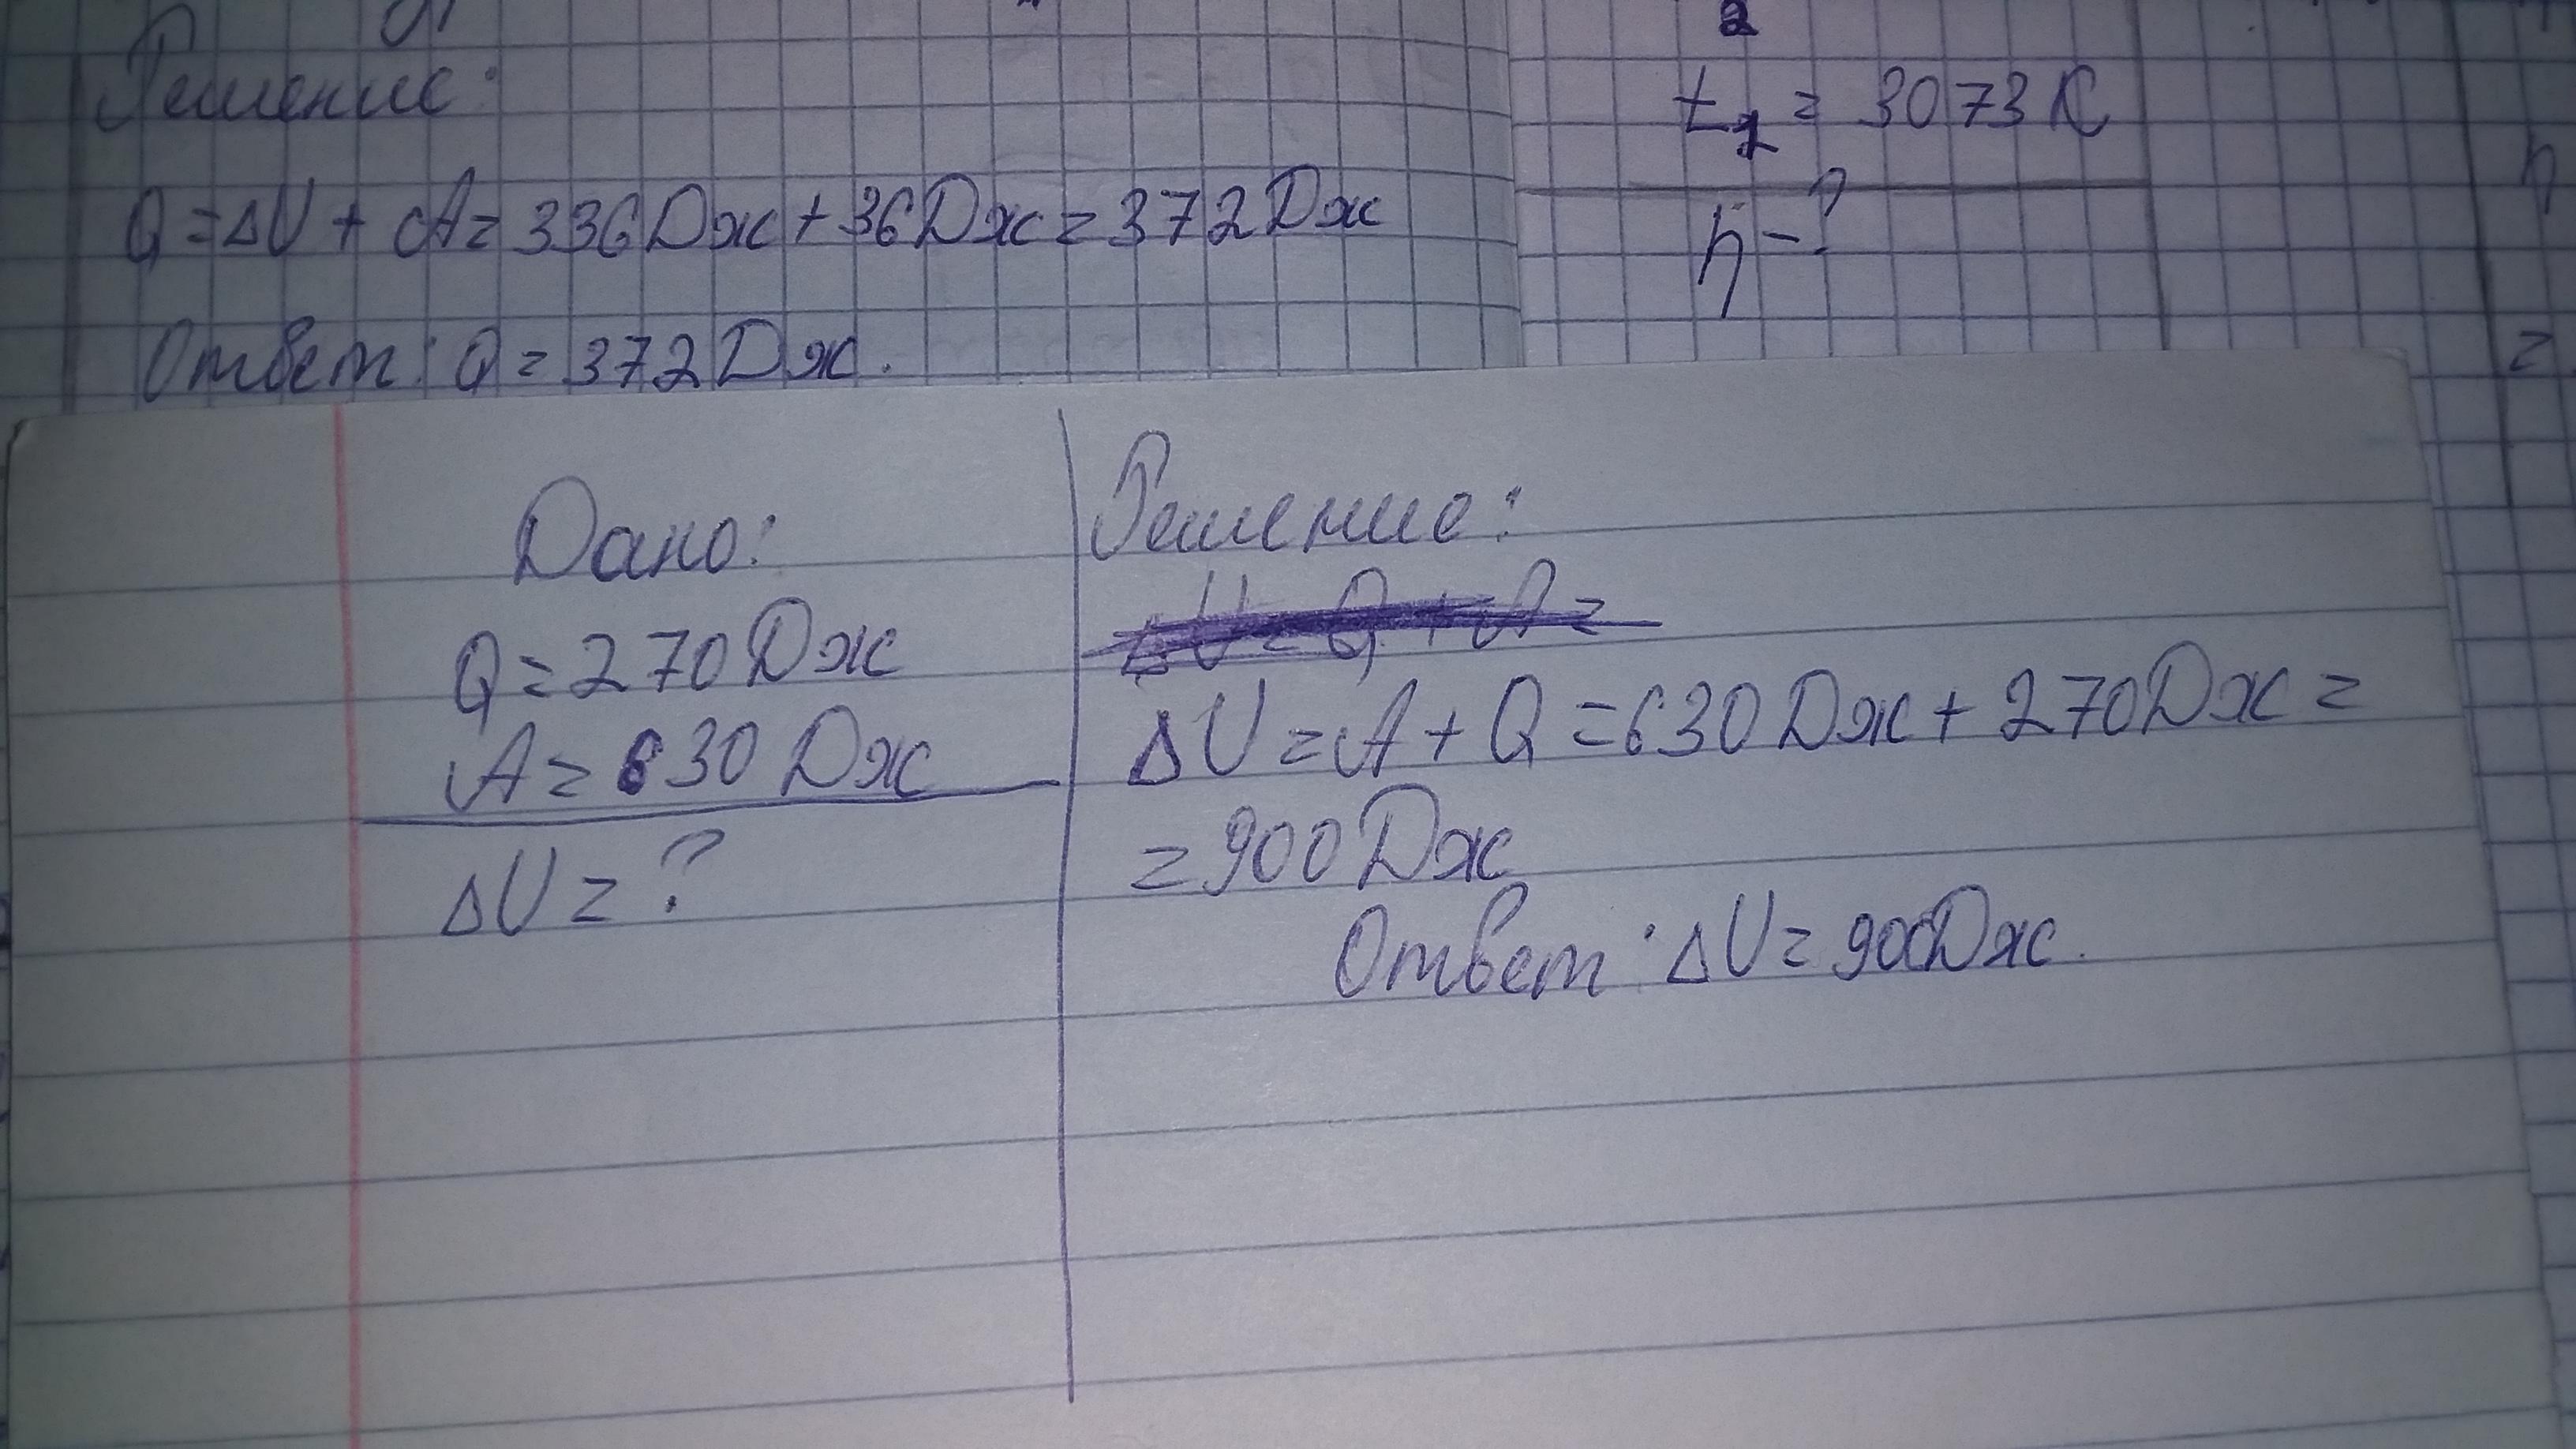 Решение:
Q = ΔU + A = 336 Дж + 36 Дж = 372 Дж
Ответ: Q = 372 Дж.
2
t₂ = 3073 К
η - ?
η
=
Дано:
Q = 270 Дж
A = 630 Дж
ΔU = ?
Решение:
ΔU = Q + A =
ΔU = A + Q = 630 Дж + 270 Дж =
= 900 Дж
Ответ: ΔU = 900Дж.